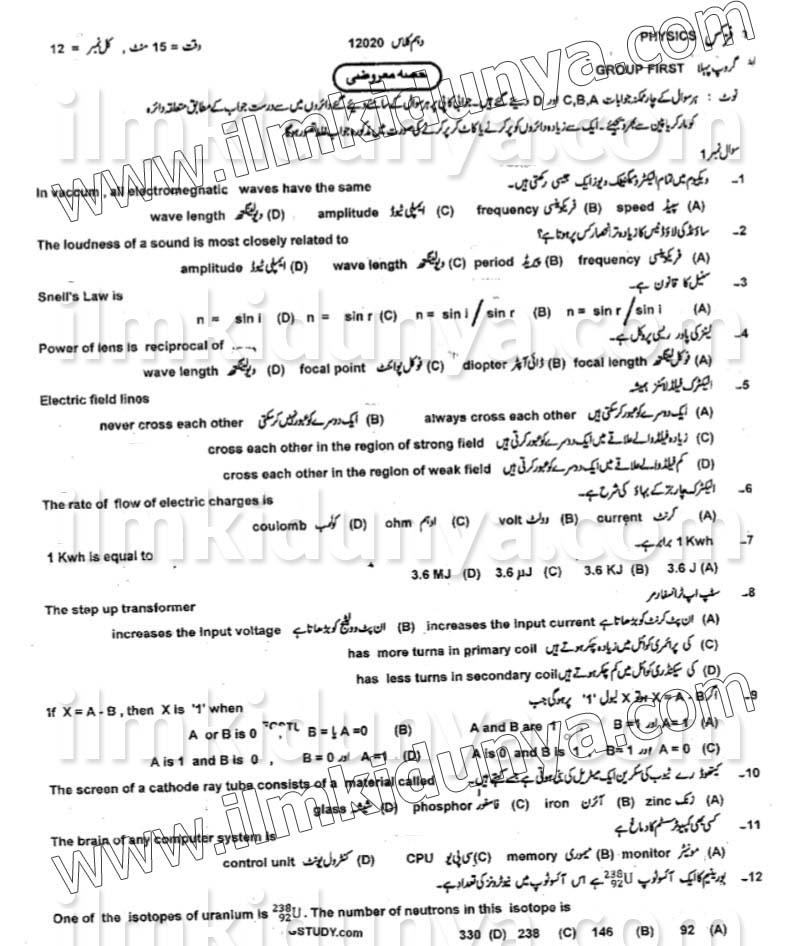 فزکس PHYSICS دہم کلاس 12020 وقت = 15 منٹ , کل نمبر = 12
گروپ پہلا GROUP FIRST حصہ معروضی
نوٹ : ہر سوال کے چار ممکنہ جوابات C,B,A اور D دیئے گئے ہیں۔ جوابی کاپی پر ہر سوال کے سامنے دیئے گئے دائروں میں سے درست جواب کے مطابق متعلقہ دائرہ
کو مارکر یا پین سے بھر دیجئے۔ ایک سے زیادہ دائروں کو پر کرنے یا کاٹ کر پر کرنے کی صورت میں مذکورہ جواب غلط تصور ہوگا۔
سوال نمبر 1
1- ویکیوم میں تمام الیکٹرومیگنیٹک ویوز ایک جیسی رکھتی ہیں۔
In vaccum , all electromegnatic waves have the same
(A) سپیڈ speed (B) فریکوئنسی frequency (C) ایمپلی ٹیوڈ amplitude (D) ویولینگتھ wave length
2- ساؤنڈ کی لاؤڈنیس کا زیادہ تر انحصار کس پر ہوتا ہے؟
The loudness of a sound is most closely related to
(A) فریکوئنسی frequency (B) پیریڈ period (C) ویولینگتھ wave length (D) ایمپلی ٹیوڈ amplitude
3- سنیل کا قانون ہے۔
Snell's Law is
(A) n = sin r / sin i (B) n = sin i / sin r (C) n = sin r (D) n = sin i
4- لینز کی پاور ریسی پروکل ہے۔
Power of lens is reciprocal of .....
(A) فوکل لینگتھ focal length (B) ڈائی آپٹر diopter (C) فوکل پوائنٹ focal point (D) ویولینگتھ wave length
5- الیکٹرک فیلڈ لائنز ہمیشہ
Electric field lines
(A) ایک دوسرے کو عبور کرتی ہیں always cross each other (B) ایک دوسرے کو عبور نہیں کر سکتی never cross each other
(C) زیادہ فیلڈ والے علاقے میں ایک دوسرے کو عبور کرتی ہیں cross each other in the region of strong field
(D) کم فیلڈ والے علاقے میں ایک دوسرے کو عبور کرتی ہیں cross each other in the region of weak field
6- الیکٹرک چارجز کے بہاؤ کی شرح ہے۔
The rate of flow of electric charges is
(A) کرنٹ current (B) وولٹ volt (C) اوہم ohm (D) کولمب coulomb
7- 1 Kwh برابر ہے۔
1 Kwh is equal to
(A) 3.6 J (B) 3.6 KJ (C) 3.6 µJ (D) 3.6 MJ
8- سٹیپ اپ ٹرانسفارمر
The step up transformer
(A) ان پٹ کرنٹ کو بڑھاتا ہے increases the Input current (B) ان پٹ وولٹیج کو بڑھاتا ہے increases the Input voltage
(C) کی پرائمری کوائل میں زیادہ چکر ہوتے ہیں has more turns in primary coil
(D) کی سیکنڈری کوائل میں کم چکر ہوتے ہیں has less turns in secondary coil
9- اگر X = A - B ہو تو X لیول '1' پر ہوگی جب
If X = A - B , then X is '1' when
(A) A=1 اور B=1 A and B are 1 (B) B = A =0 A or B is 0
(C) A = 0 اور B=1 A is 0 and B is 1 (D) A=1 اور B = 0 A is 1 and B is 0
10- کیتھوڈ رے ٹیوب کی سکرین ایک میٹریل کی بنی ہوتی ہے جسے کہتے ہیں۔
The screen of a cathode ray tube consists of a material called
(A) زنک zinc (B) آئرن iron (C) فاسفور phosphor (D) شیشہ glass
11- کسی بھی کمپیوٹر سسٹم کا دماغ ہے
The brain of any computer system is
(A) مونیٹر monitor (B) میموری memory (C) سی پی یو CPU (D) کنٹرول یونٹ control unit
12- یورینیم کا ایک آئسوٹوپ ²³⁸₉₂U ہے اس آئسوٹوپ میں نیوٹرونز کی تعداد ہے۔
One of the isotopes of uranium is ²³⁸₉₂U . The number of neutrons in this isotope is
(A) 92 (B) 146 (C) 238 (D) 330
STUDY.com
www.ilmkidunya.com
ilmkidunya.com